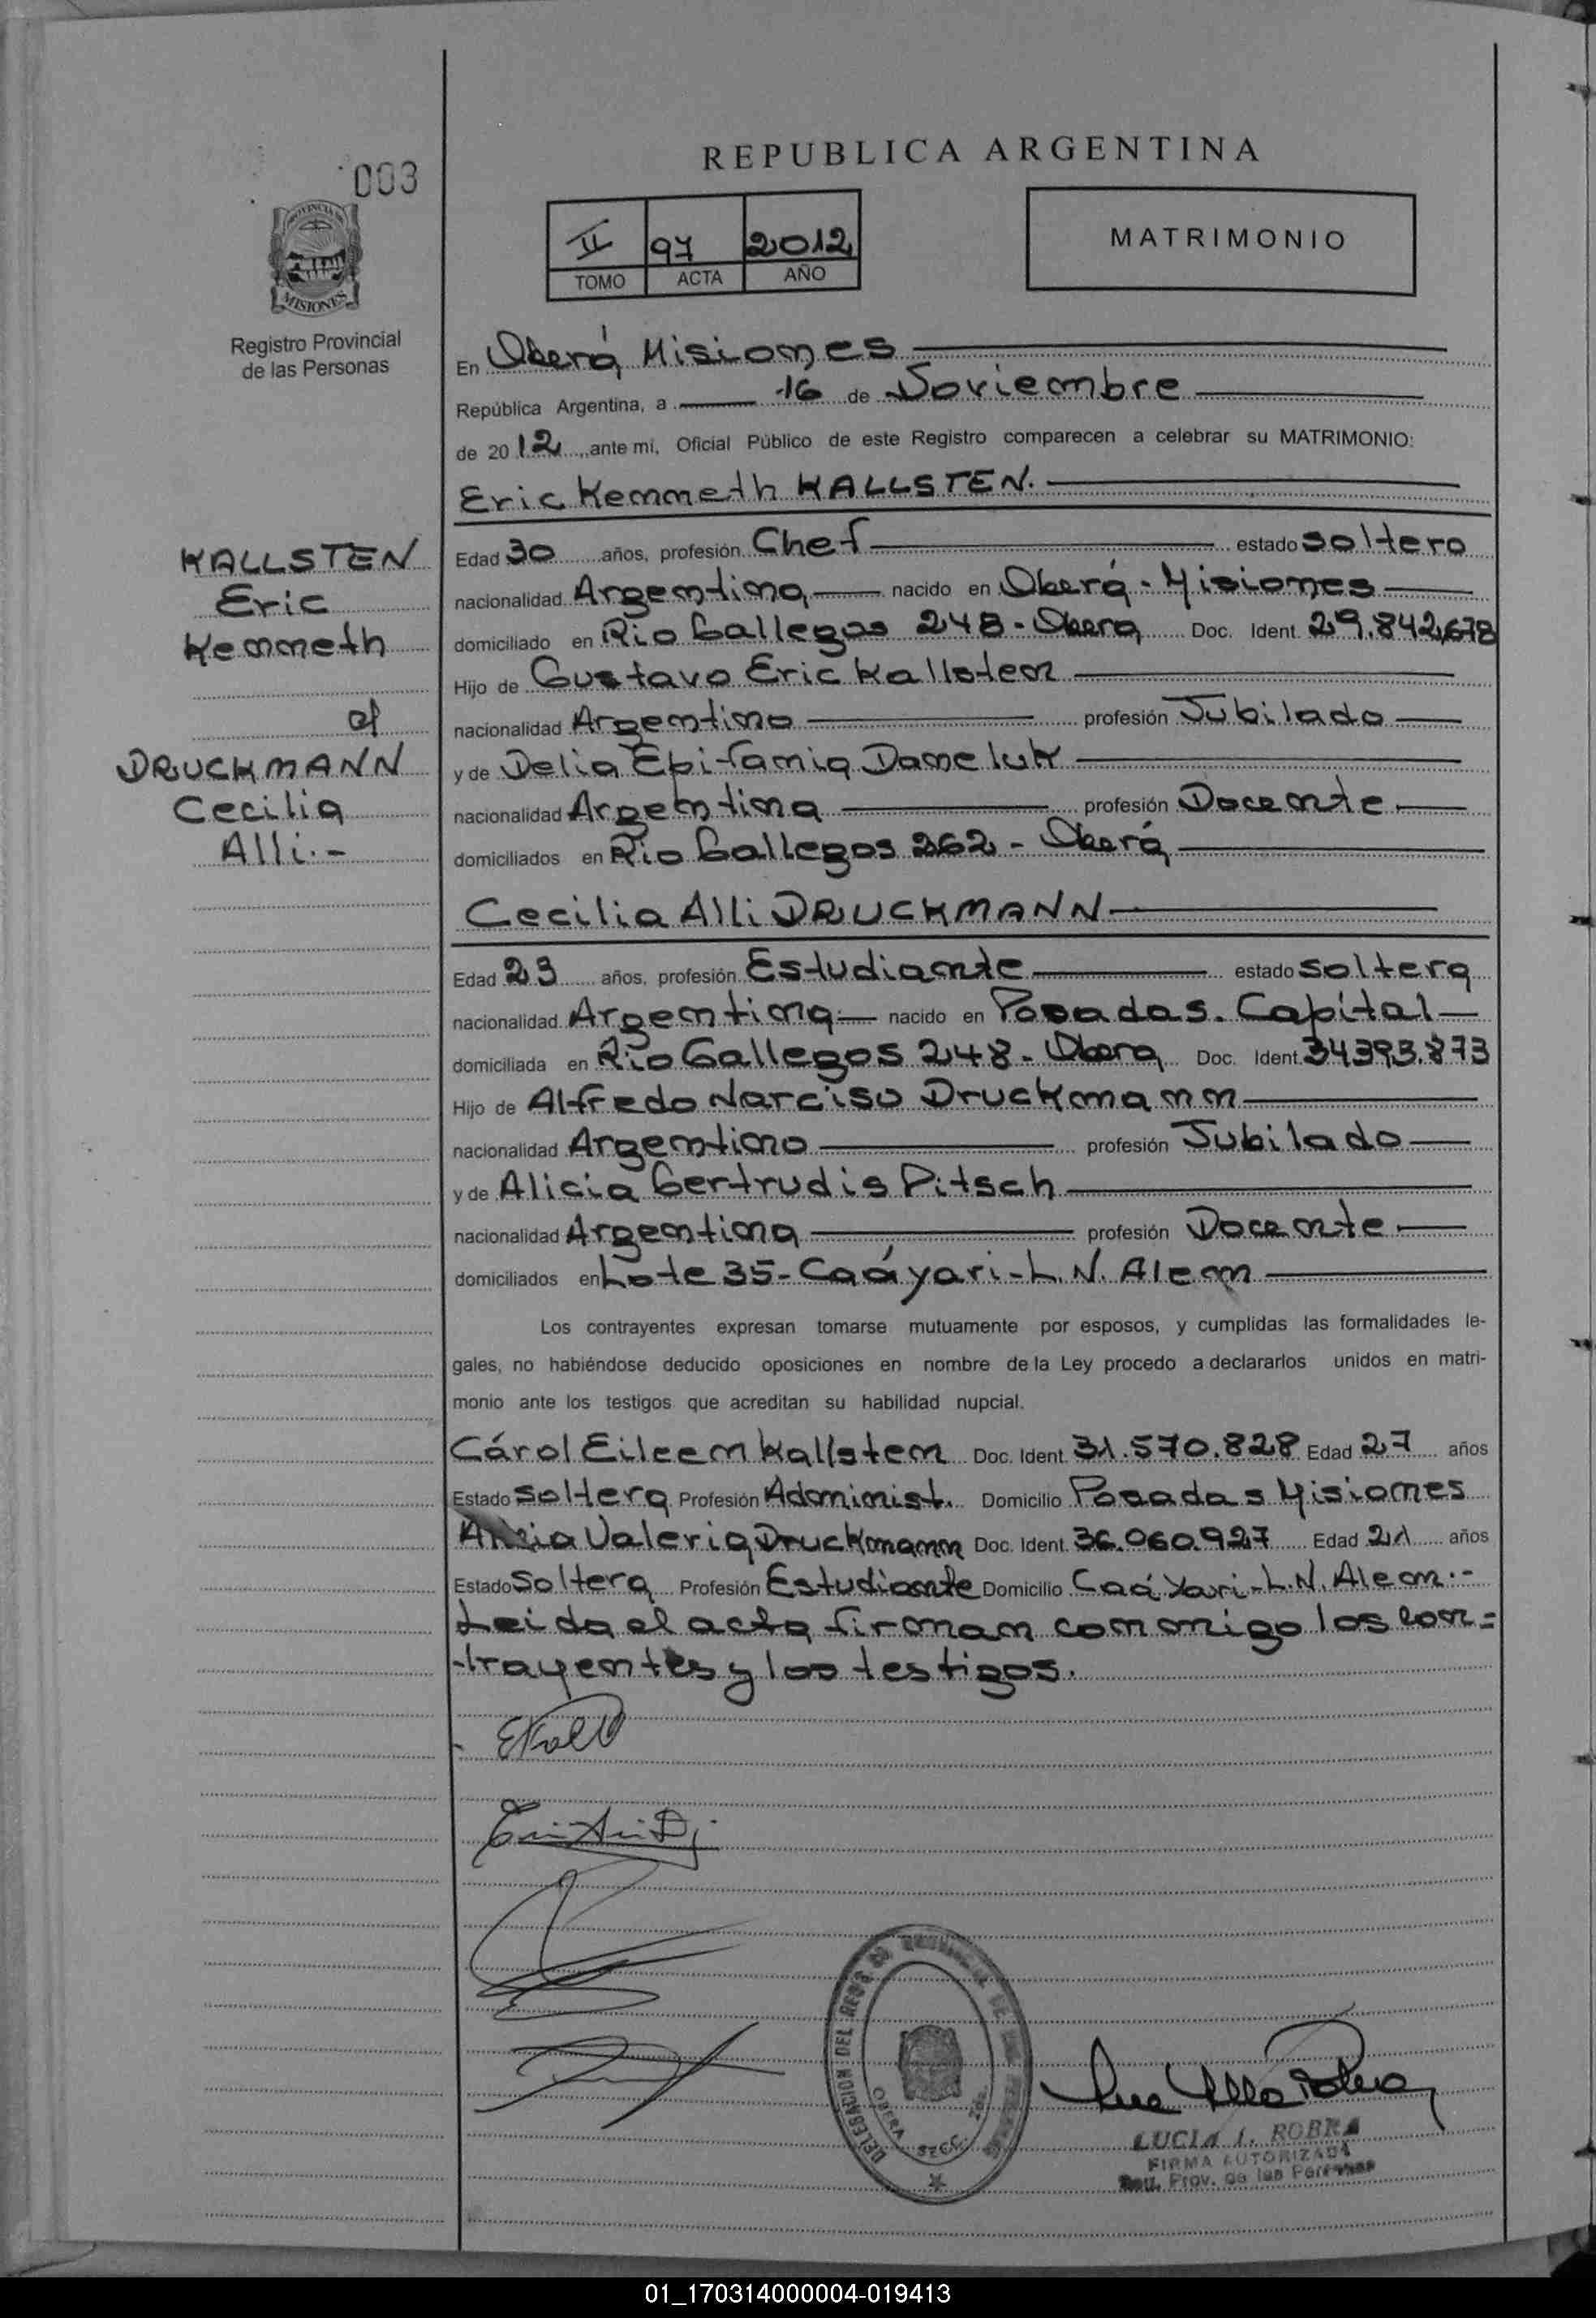 003
PROVINCIA DE
MISIONES
Registro Provincial
de las Personas
REPUBLICA ARGENTINA
II 97 2012
TOMO ACTA AÑO
MATRIMONIO
En Oberá Misiones
República Argentina, a 16 de Noviembre
de 2012, ante mi, Oficial Público de este Registro comparecen a celebrar su MATRIMONIO:
Eric Kenneth KALLSTEN.
KALLSTEN
Eric
Kenneth
c/
DRUCKMANN
Cecilia
Alli.-
Edad 30 años, profesión Chef estado soltero
nacionalidad Argentina nacido en Oberá - Misiones
domiciliado en Rio Gallegos 248 - Obera Doc. Ident. 29.842.678
Hijo de Gustavo Eric Kallsten
nacionalidad Argentino profesión Jubilado
y de Delia Epifania Daneluk
nacionalidad Argentina profesión Docente
domiciliados en Rio Gallegos 262 - Oberá
Cecilia Alli DRUCKMANN
Edad 23 años, profesión Estudiante estado soltera
nacionalidad Argentina nacido en Posadas. Capital
domiciliada en Rio Gallegos 248 - Obera Doc. Ident. 34.393.873
Hijo de Alfredo Narciso Druckmann
nacionalidad Argentino profesión Jubilado
y de Alicia Gertrudis Pitsch
nacionalidad Argentina profesión Docente
domiciliados en Lote 35 - Caáyari - L.N. Alem
Los contrayentes expresan tomarse mutuamente por esposos, y cumplidas las formalidades le-
gales, no habiéndose deducido oposiciones en nombre de la Ley procedo a declararlos unidos en matri-
monio ante los testigos que acreditan su habilidad nupcial.
Cárol Eileen Kallsten Doc. Ident. 31.570.828 Edad 27 años
Estado soltera Profesión Administ. Domicilio Posadas Misiones
Valeria Druckmann Doc. Ident. 36.060.927 Edad 21 años
Estado Soltera Profesión Estudiante Domicilio Caá Yari - L.N. Alem.-
Leida el acta firman conmigo los con=
trayentes y los testigos.
DELEGACION DEL REG.
OBERA SECC.
LUCIA I. ROBRA
FIRMA AUTORIZADA
Prov. de las Personas
01_170314000004-019413